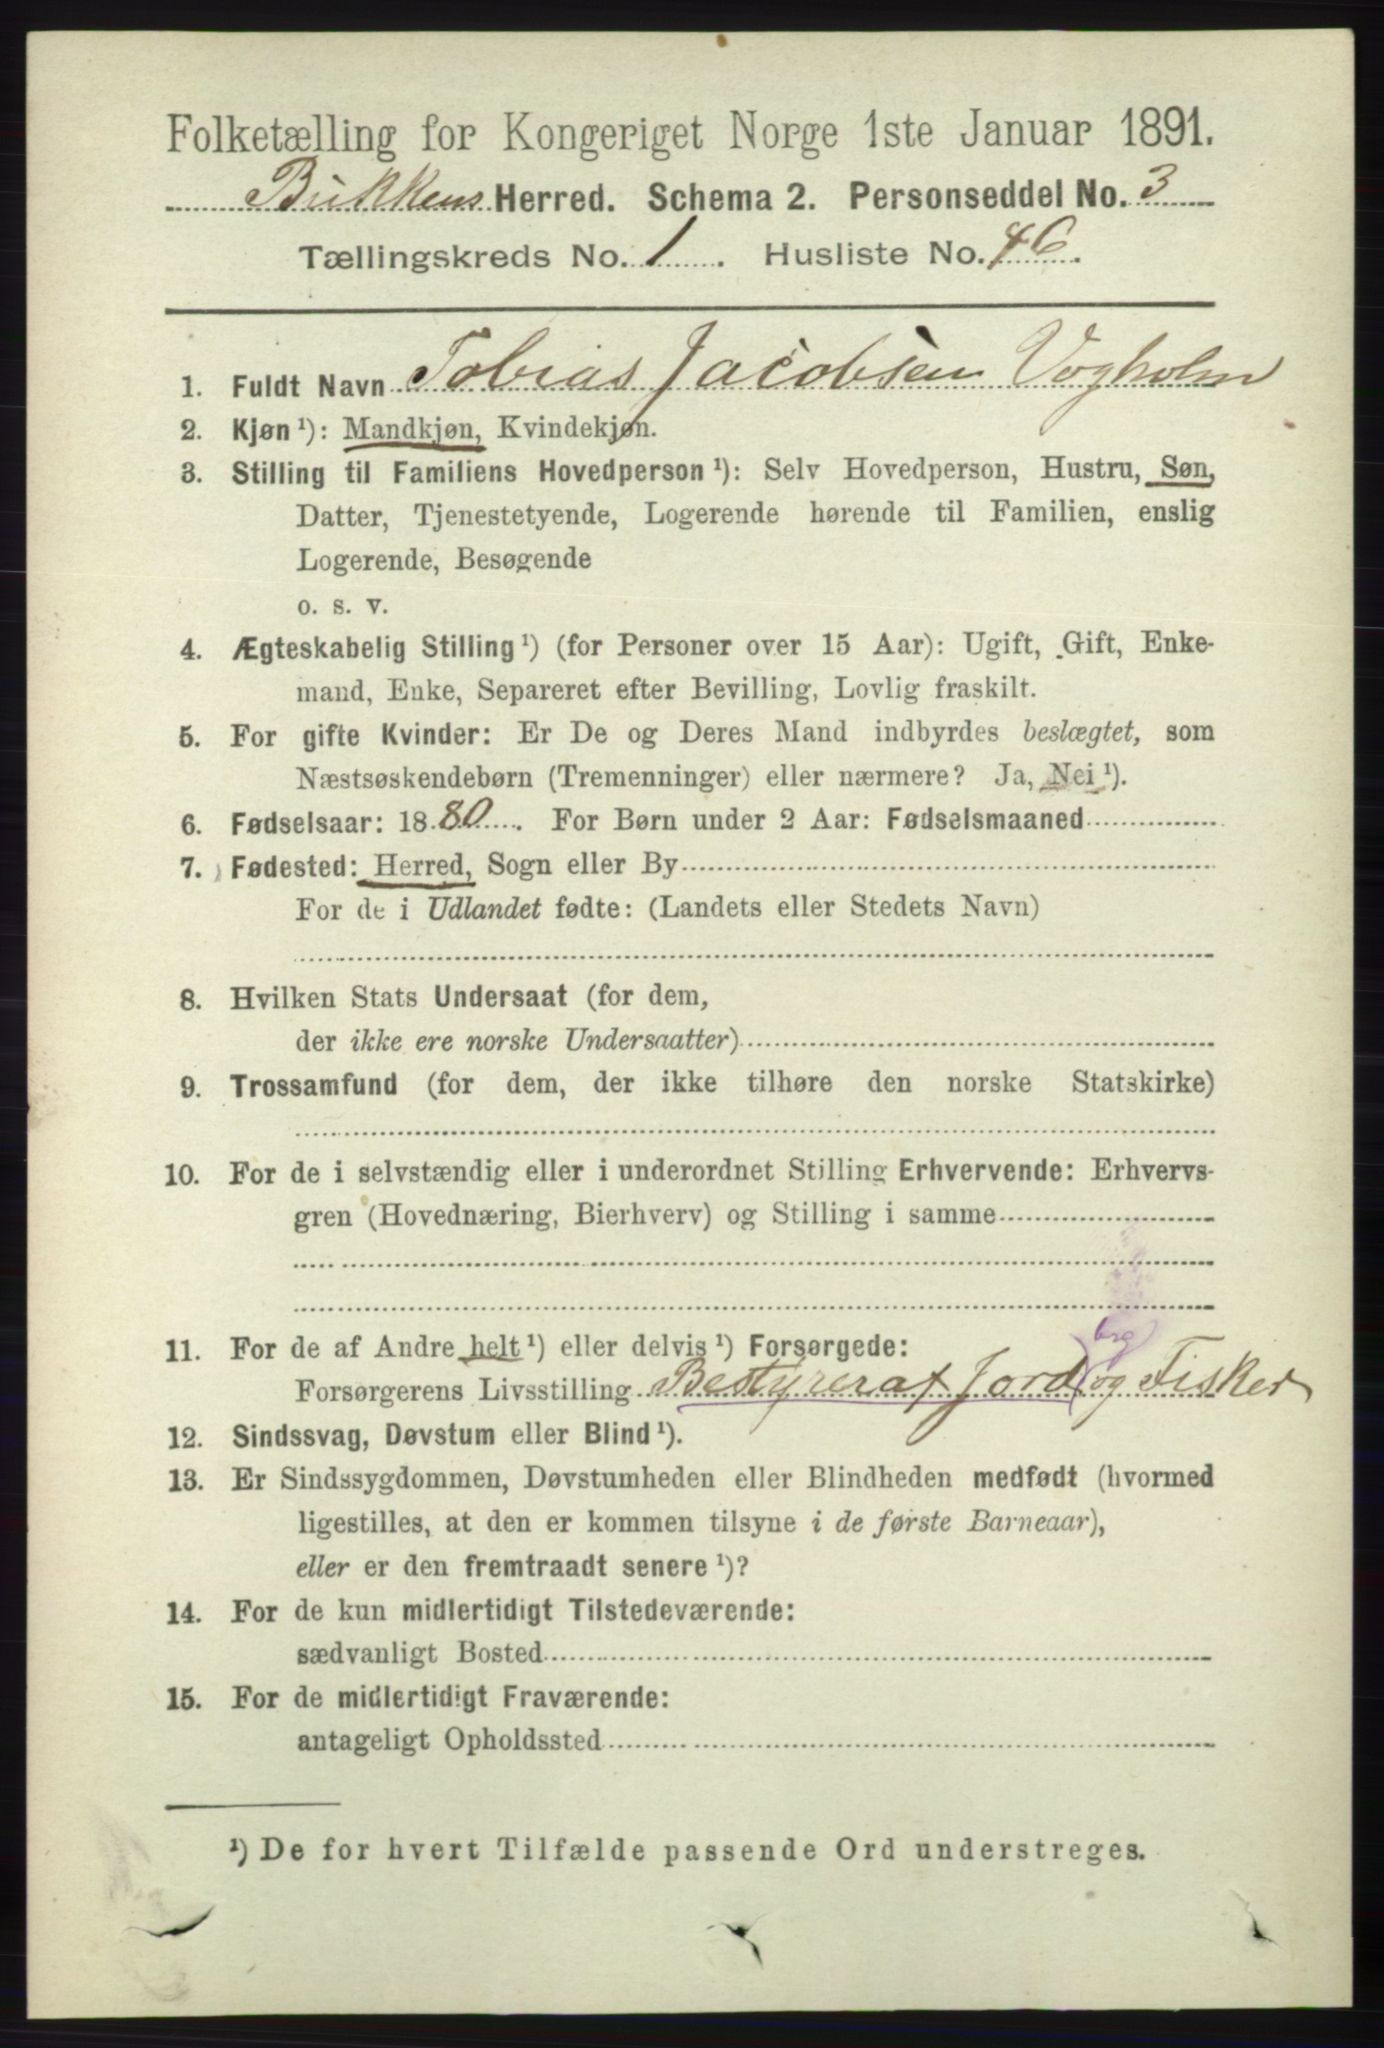 Folketælling for Kongeriget Norge 1ste Januar 1891.
Bukkens Herred. Schema 2. Personseddel No. 3
Tællingskreds No. 1. Husliste No. 46.
1. Fuldt Navn Tobias Jacobsen Vogholm
2. Kjøn ¹): Mandkjøn, Kvindekjøn.
3. Stilling til Familiens Hovedperson ¹): Selv Hovedperson, Hustru, Søn,
Datter, Tjenestetyende, Logerende hørende til Familien, enslig
Logerende, Besøgende
o. s. v.
4. Ægteskabelig Stilling ¹) (for Personer over 15 Aar): Ugift, Gift, Enke-
mand, Enke, Separeret efter Bevilling, Lovlig fraskilt.
5. For gifte Kvinder: Er De og Deres Mand indbyrdes beslægtet, som
Næstsøskendebørn (Tremenninger) eller nærmere? Ja, Nei ¹).
6. Fødselsaar: 1880. For Børn under 2 Aar: Fødselsmaaned
7. Fødested: Herred, Sogn eller By
For de i Udlandet fødte: (Landets eller Stedets Navn)
8. Hvilken Stats Undersaat (for dem,
der ikke ere norske Undersaatter)
9. Trossamfund (for dem, der ikke tilhøre den norske Statskirke)
10. For de i selvstændig eller i underordnet Stilling Erhvervende: Erhvervs-
gren (Hovednæring, Bierhverv) og Stilling i samme
11. For de af Andre helt ¹) eller delvis ¹) Forsørgede:
brg
Forsørgerens Livsstilling Bestyrer af Jord og Fisker
12. Sindssvag, Døvstum eller Blind ¹).
13. Er Sindssygdommen, Døvstumheden eller Blindheden medfødt (hvormed
ligestilles, at den er kommen tilsyne i de første Barneaar),
eller er den fremtraadt senere ¹)?
14. For de kun midlertidigt Tilstedeværende:
sædvanligt Bosted
15. For de midlertidigt Fraværende:
antageligt Opholdssted
¹) De for hvert Tilfælde passende Ord understreges.